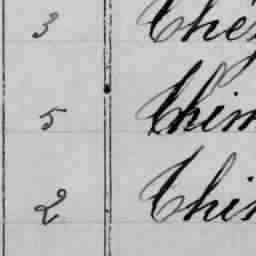 3 Che
5 Chim
2 Chin